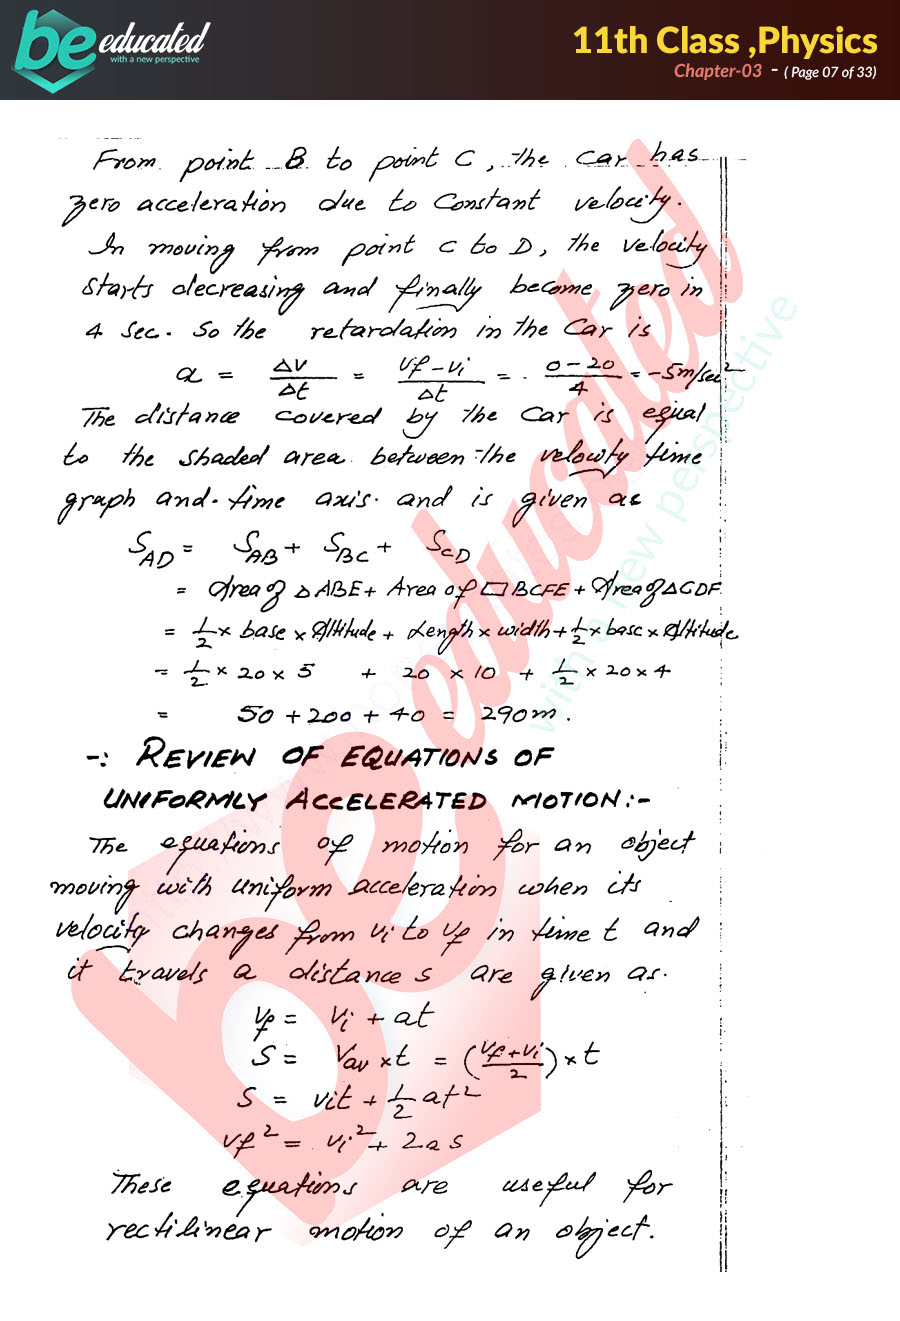 be educated
with a new perspective
11th Class ,Physics
Chapter-03 - ( Page 07 of 33)
From point B to point C, the car has
zero acceleration due to constant velocity.
In moving from point C to D, the velocity
starts decreasing and finally become zero in
4 sec. So the retardation in the car is
a = Δv/Δt = vf-vi/Δt = 0-20/4 = -5m/sec²
The distance covered by the car is equal
to the shaded area between the velocity time
graph and time axis and is given as
S_AD = S_AB + S_BC + S_CD
= Area of △ABE + Area of ▭BCFE + Area of △CDF
= 1/2 × base × Altitude + Length × width + 1/2 × base × Altitude
= 1/2 × 20 × 5 + 20 × 10 + 1/2 × 20 × 4
= 50 + 200 + 40 = 290m.
-: REVIEW OF EQUATIONS OF
UNIFORMLY ACCELERATED MOTION:-
The equations of motion for an object
moving with uniform acceleration when its
velocity changes from vi to vf in time t and
it travels a distance s are given as.
vf = vi + at
S = Vav × t = (vf+vi/2) × t
S = vit + 1/2 at²
vf² = vi² + 2as
These equations are useful for
rectilinear motion of an object.
be educated
with a new perspective